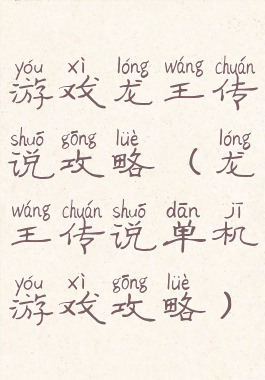 yóu xì lóng wáng chuán
游戏龙王传
shuō gōng lüè lóng
说攻略（龙
wáng chuán shuō dān jī
王传说单机
yóu xì gōng lüè
游戏攻略）